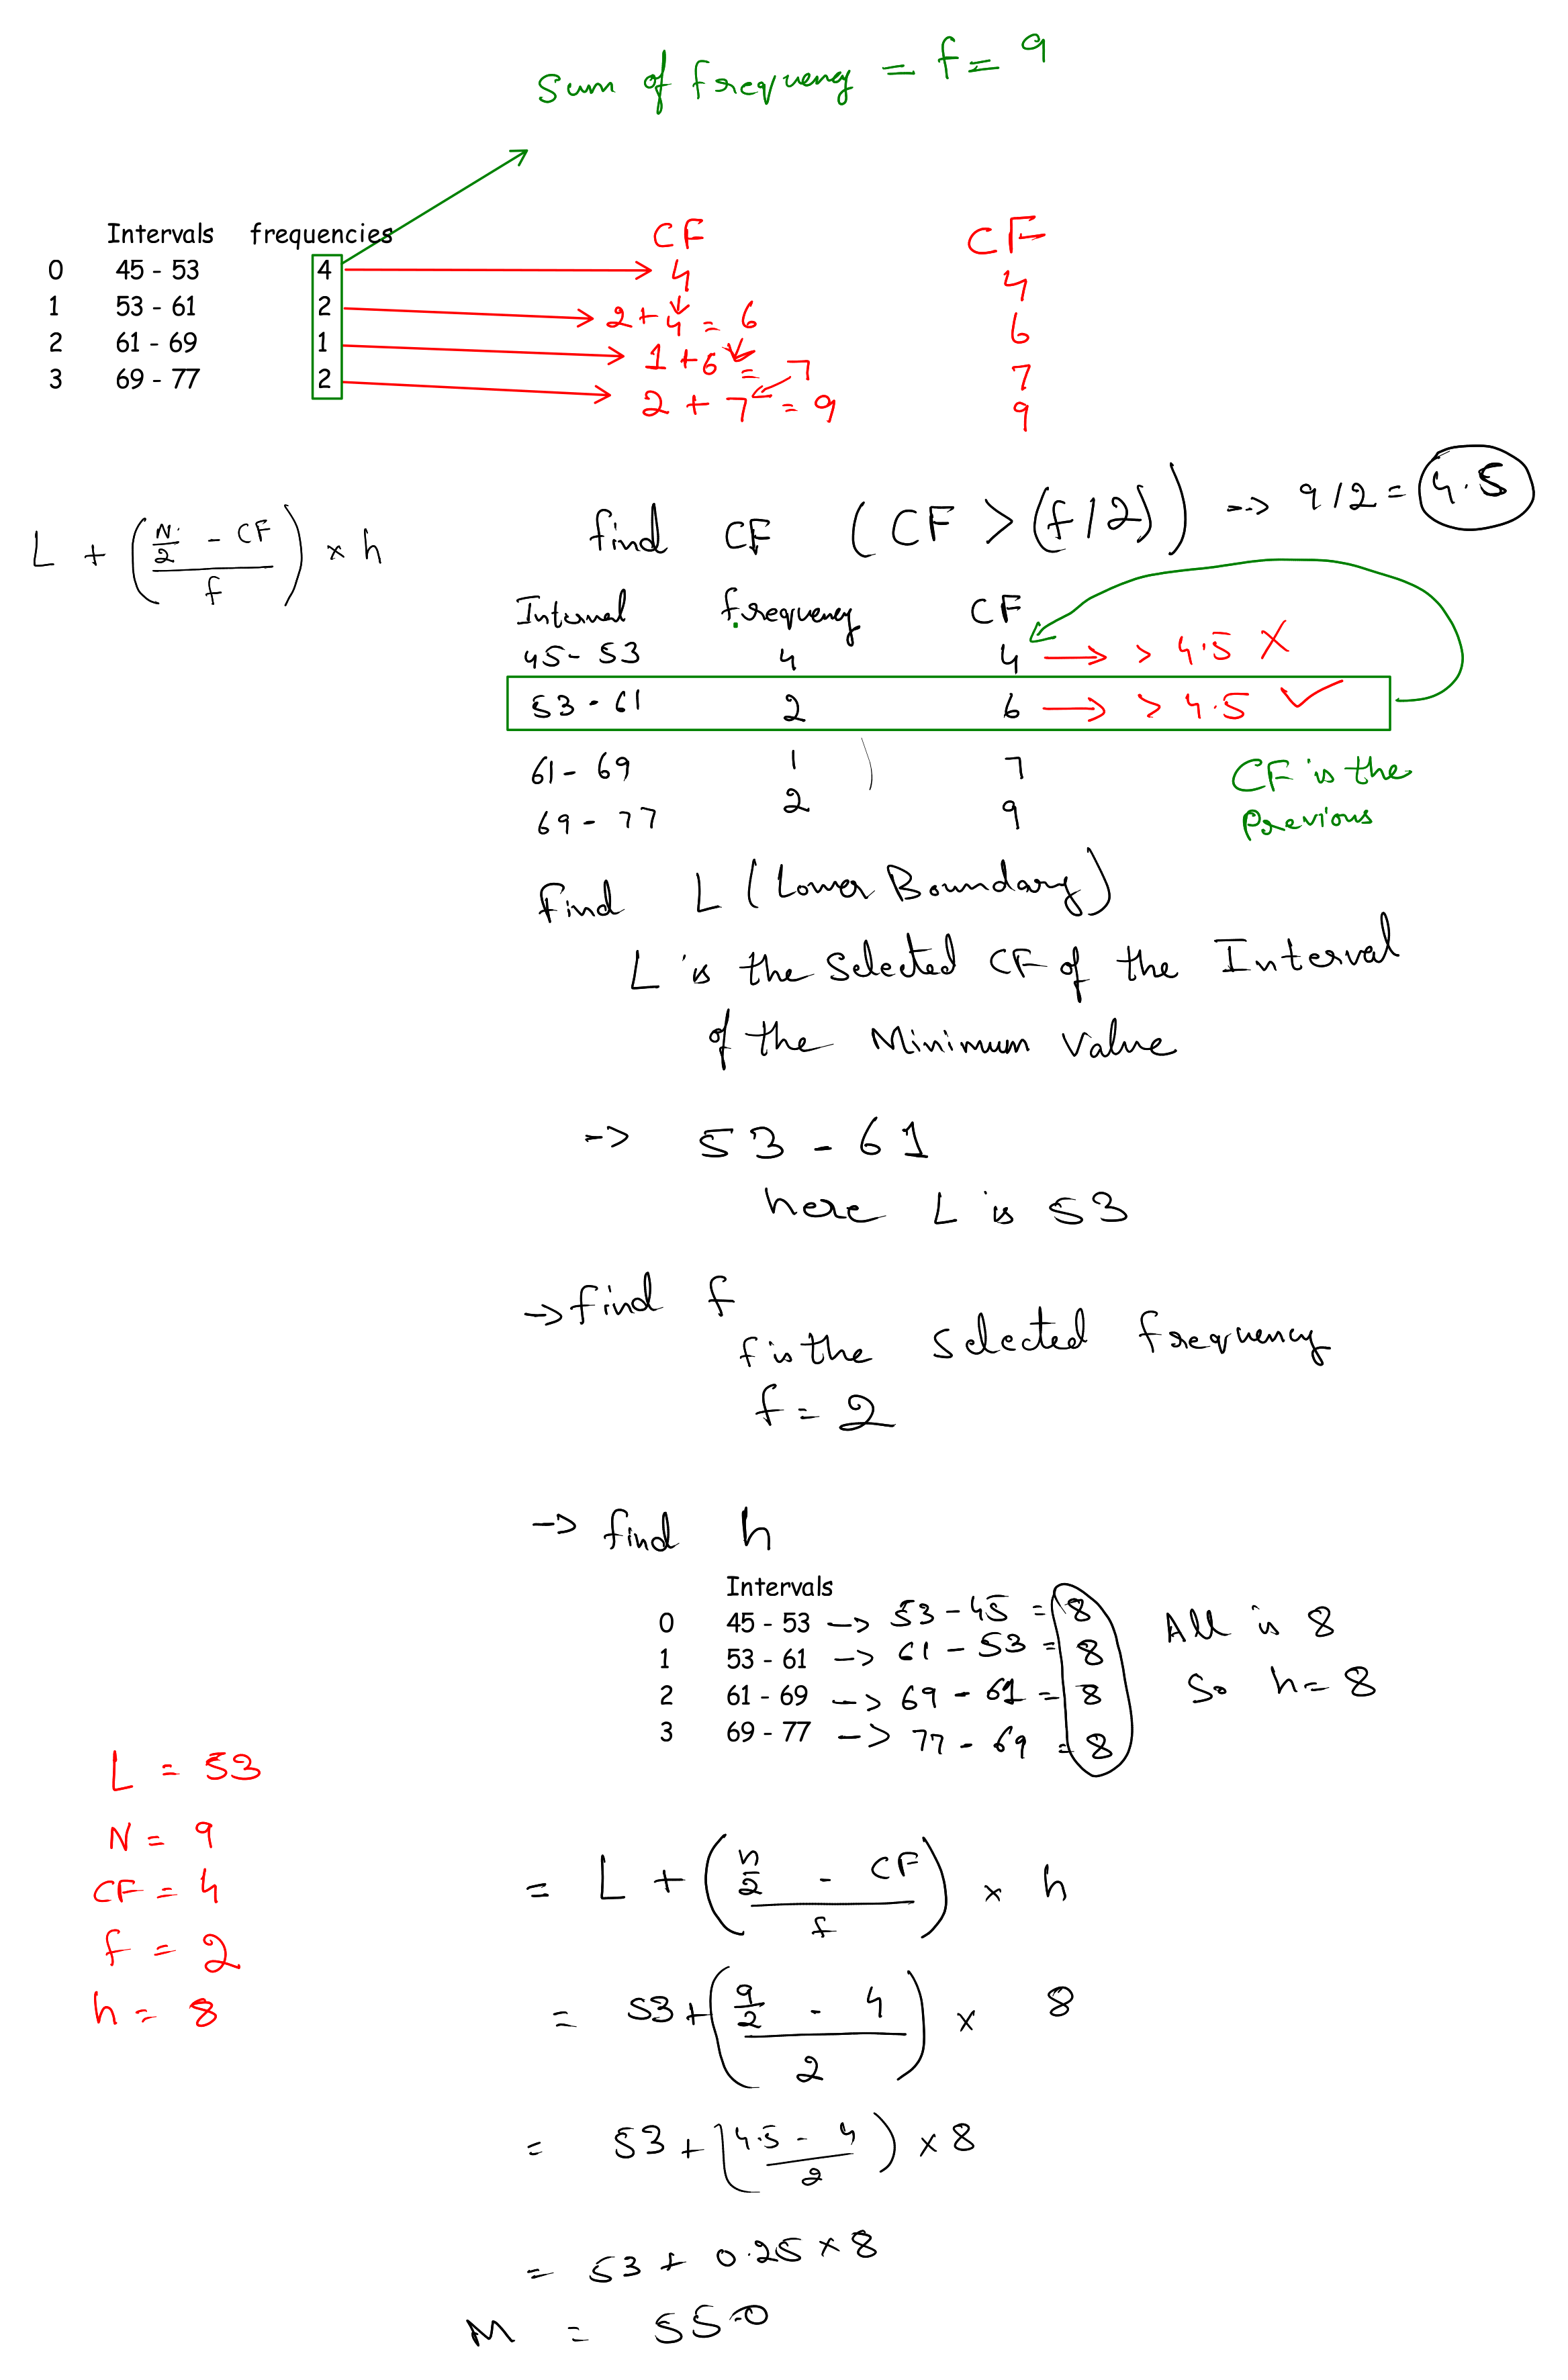 Sum of frequency = f = 9
Intervals frequencies CF CF
0 45 - 53 4 4 4
1 53 - 61 2 2 + 4 = 6 6
2 61 - 69 1 1 + 6 = 7 7
3 69 - 77 2 2 + 7 = 9 9
L + ((N/2 - CF)/f) × h
find CF (CF > (f/2)) --> 9/2 = 4.5
Interval frequency CF
45 - 53 4 4 → > 4.5 X
53 - 61 2 6 → > 4.5 ✓
61 - 69 1 7
69 - 77 2 9
CF is the
Previous
find L (Lower Boundary)
L is the Selected CF of the Interval
of the Minimum Value
-> 53 - 61
here L is 53
-> find f
f is the Selected frequency
f = 2
-> find h
Intervals
0 45 - 53 -> 53 - 45 = 8
1 53 - 61 -> 61 - 53 = 8
2 61 - 69 -> 69 - 61 = 8
3 69 - 77 -> 77 - 69 = 8
All is 8
So h = 8
L = 53
N = 9
CF = 4
f = 2
h = 8
= L + ((n/2 - CF)/f) × h
= 53 + ((9/2 - 4)/2) × 8
= 53 + ((4.5 - 4)/2) × 8
= 53 + 0.25 × 8
M = 55.0